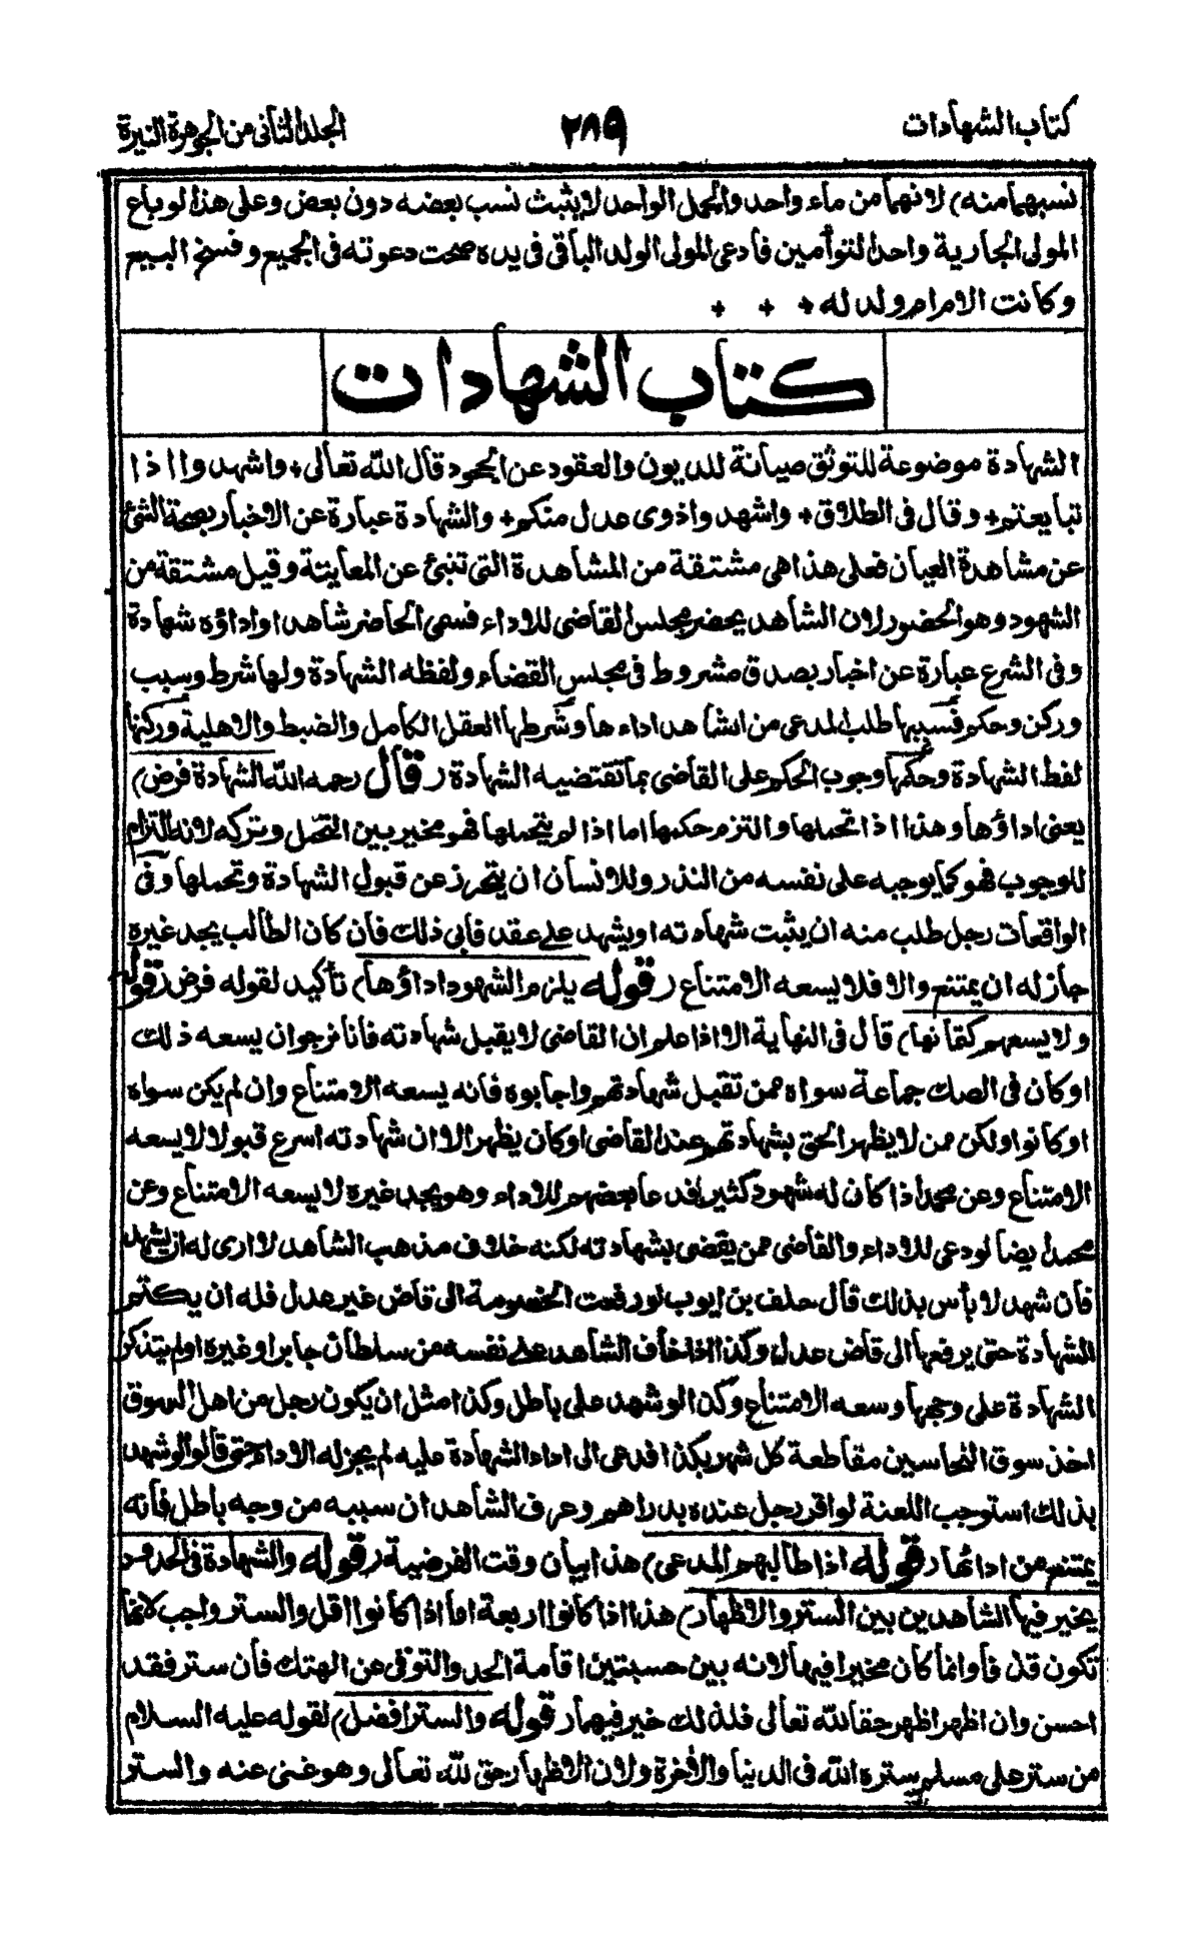 كتاب الشهادات
٢٨٩
الجلد الثانى من الجوهرة النيرة
نسبهما منه) لانهما من ماء واحد والحمل الواحد لا يثبت نسب بعضه دون بعض وعلى هذا لو باع
المولى الجارية واحد التوأمين فادعى المولى الولد الباقى فى يده صحت دعوته فى الجميع وفسخ البيع
وكانت الام ام ولد له + + +
كتاب الشهادات
الشهادة موضوعة للتوثق صيانة للديون والعقود عن الجحود قال الله تعالى + واشهدوا اذا
تبايعتم + وقال فى الطلاق + واشهدوا ذوى عدل منكم + والشهادة عبارة عن الاخبار بصحة الشئ
عن مشاهدة العيان فعلى هذا هى مشتقة من المشاهدة التى تنبئ عن المعاينة وقيل مشتقة من
الشهود وهو الحضور لان الشاهد يحضر مجلس القاضى للاداء فسمى الحاضر شاهدا واداؤه شهادة
وفى الشرع عبارة عن اخبار بصدق مشروط فى مجلس القضاء ولفظه الشهادة ولها شرط وسبب
وركن وحكم فسببها طلب المدعى من الشاهد اداءها وشرطها العقل الكامل والضبط والاهلية وركنها
لفظ الشهادة وحكمها وجوب الحكم على القاضى بما تقتضيه الشهادة (قال رحمه الله الشهادة فرض)
يعنى اداؤها وهذا اذا تحملها والتزم حكمها اما اذا لم يتحملها فهو مخير بين التحمل وتركه لانه التزام
للوجوب فهو كما يوجبه على نفسه من النذر وللانسان ان يتحرز عن قبول الشهادة وتحملها وفى
الواقعات رجل طلب منه ان يثبت شهادته او يشهد على عقد فابى ذلك فان كان الطالب يجد غيره
جاز له ان يمتنع والا فلا يسعه الامتناع (قوله يلزم الشهود اداؤها) تأكيد لقوله فرض (قوله
ولا يسعهم كتمانها) قال فى النهاية الا اذا علم ان القاضى لا يقبل شهادته فانا نرجو ان يسعه ذلك
او كان فى الصك جماعة سواه ممن تقبل شهادتهم واجابوه فانه يسعه الامتناع وان لم يكن سواه
او كانوا ولكن ممن لا يظهر الحق بشهادتهم عند القاضى او كان يظهر الا ان شهادته اسرع قبولا لا يسعه
الامتناع وعن محمد اذا كان له شهود كثير فدعا بعضهم للاداء وهو يجد غيره لا يسعه الامتناع وعن
محمد ايضا لو دعى للاداء والقاضى ممن يقضى بشهادته لكنه خلاف مذهب الشاهد لا ارى له ان يشهد
فان شهد لا بأس بذلك قال خلف بن ايوب لو رفعت الخصومة الى قاض غير عدل فله ان يكتم
الشهادة حتى يرفعها الى قاض عدل وكذا اذا خاف الشاهد على نفسه من سلطان جابر او غيره او لم يتذكر
الشهادة على وجهها وسعه الامتناع وكذا لو شهد على باطل وكذا مثل ان يكون رجل من اهل السوق
اخذ سوق النخاسين مقاطعة كل شهر بكذا فدعى الى اداء الشهادة عليه لم يجز له الاداء حتى قالوا لو شهد
بذلك استوجب اللعنة لو اقر رجل عنده بدراهم وعرف الشاهد ان سببه من وجه باطل فانه
يمتنع من ادائها (قوله اذا طالبهم المدعى) هذا بيان وقت الفرضية (قوله والشهادة فى الحدود
يخير فيها الشاهد ين بين الستر والاظهار) هذا اذا كانوا اربعة اما اذا كانوا اقل والستر واجب لانها
تكون قذفا وانما كان مخيرا فيها لانه بين حسبتين اقامة الحد والتوقى عن الهتك فان ستر فقد
احسن وان اظهر اظهر حقا لله تعالى فلذلك خير فيهما (قوله والستر افضل) لقوله عليه السلام
من ستر على مسلم ستره الله فى الدنيا والآخرة ولان الاظهار حق لله تعالى وهو غنى عنه والستر